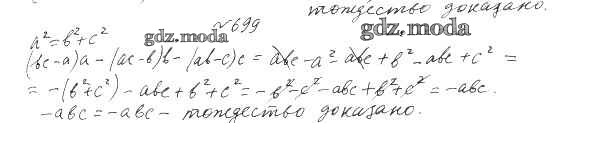 тождество доказано.
№ 699
a² = b² + c²
gdz.moda gdz.moda
(bc - a)a - (ac - b)b - (ab - c)c = abc - a² - abc + b² - abc + c² =
= -(b² + c²) - abc + b² + c² = -b² - c² - abc + b² + c² = -abc.
-abc = -abc - тождество доказано.